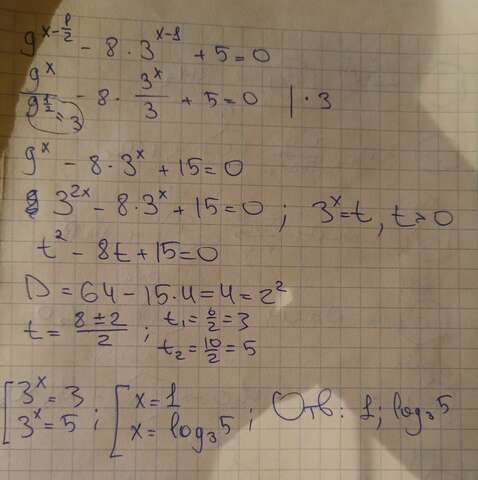 9^{x-\frac{1}{2}} - 8 · 3^{x-1} + 5 = 0
\frac{9^x}{9^{\frac{1}{2}} = 3} - 8 · \frac{3^x}{3} + 5 = 0 | · 3
9^x - 8 · 3^x + 15 = 0
3^{2x} - 8 · 3^x + 15 = 0 ; 3^x = t, t > 0
t^2 - 8t + 15 = 0
D = 64 - 15 · 4 = 4 = 2^2
t = \frac{8 ± 2}{2} ; t_1 = \frac{6}{2} = 3
t_2 = \frac{10}{2} = 5
[3^x = 3 ; [x = 1 ; Отв: 1; log_3 5
3^x = 5 x = log_3 5